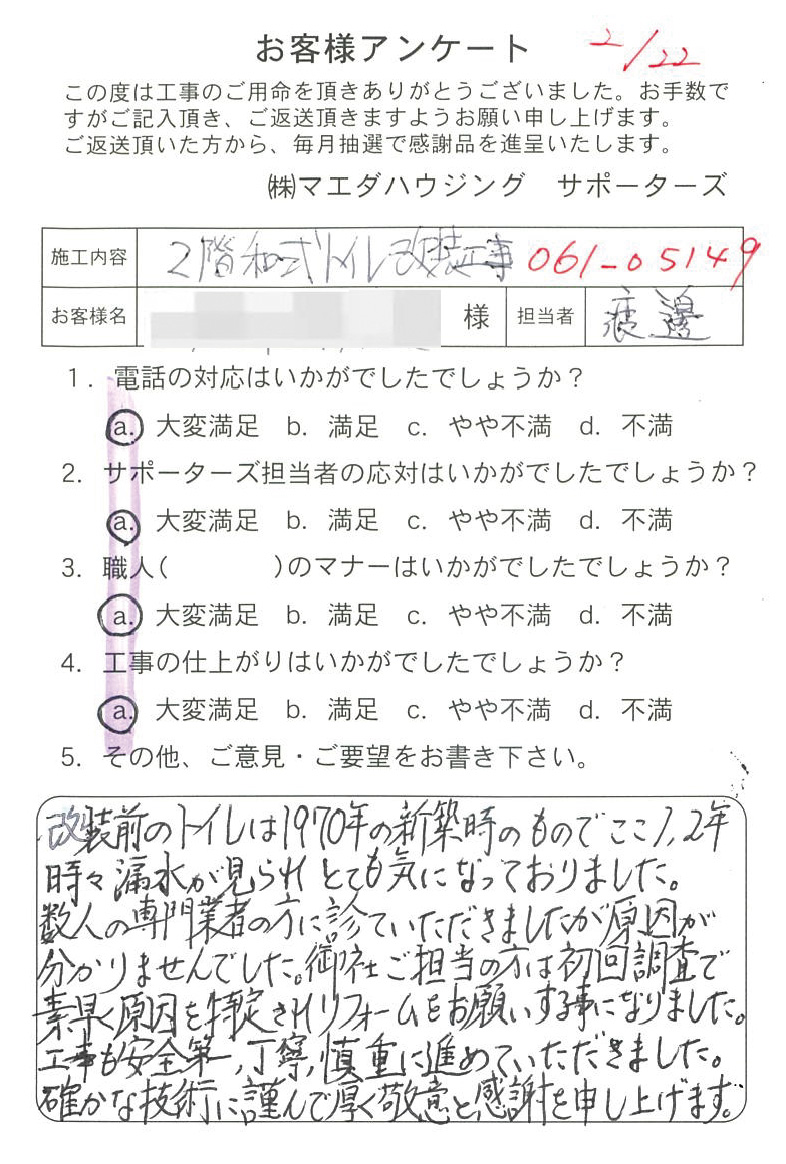 お客様アンケート 2/22
この度は工事のご用命を頂きありがとうございました。お手数で
すがご記入頂き、ご返送頂きますようお願い申し上げます。
ご返送頂いた方から、毎月抽選で感謝品を進呈いたします。
㈱マエダハウジング サポーターズ
施工内容 2階和式トイレ改装工事 061-05149
お客様名 様 担当者 渡邉
1. 電話の対応はいかがでしたでしょうか?
a. 大変満足 b. 満足 c. やや不満 d. 不満
2. サポーターズ担当者の応対はいかがでしたでしょうか?
a. 大変満足 b. 満足 c. やや不満 d. 不満
3. 職人( )のマナーはいかがでしたでしょうか?
a. 大変満足 b. 満足 c. やや不満 d. 不満
4. 工事の仕上がりはいかがでしたでしょうか?
a. 大変満足 b. 満足 c. やや不満 d. 不満
5. その他、ご意見・ご要望をお書き下さい。
改装前のトイレは1970年の新築時のものでここ1,2年
時々漏水が見られとても気になっておりました。
数人の専門業者の方に診ていただきましたが原因が
分かりませんでした。御社ご担当の方は初回調査で
素早く原因を特定されリフォームをお願いする事になりました。
工事も安全第一,丁寧,慎重に進めていただきました。
確かな技術に謹んで厚く敬意と感謝を申し上げます。